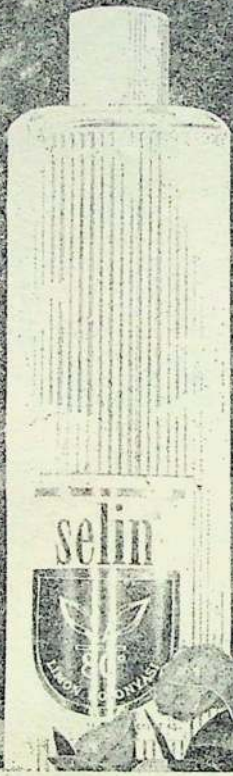 selin
80°
LİMON KOLONYASI